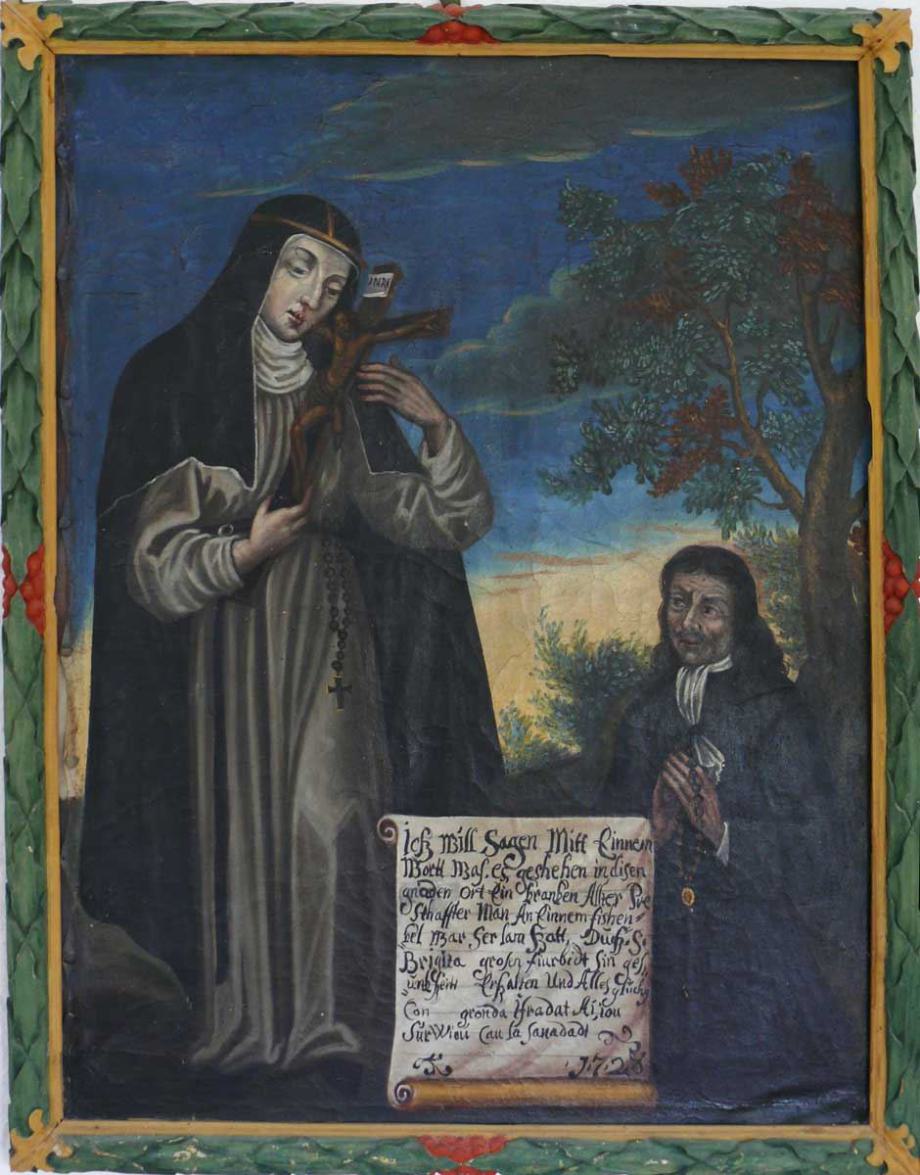 INRI
Ich Will Sagen Mitt Einnem
Wortt Was. es geshehen in disen
gnaden ort Ein kranken Alter Pre
sthaffter Man An Einnem fishen-
kel War. Ser lam Hatt, Duch. S.
Brigita grosen fiurbidt Sin ges.
undheitt Erhalten Und Alles glück
Con gronda Hradat Ai, iou
Sur Wiou Cau sa sanadadt
1.7.2.8